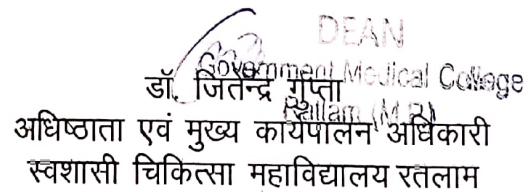 DEAN
Government Medical College
डॉ. जितेन्द्र गुप्ता
Ratlam (M.P.)
अधिष्ठाता एवं मुख्य कार्यपालन अधिकारी
स्वशासी चिकित्सा महाविद्यालय रतलाम